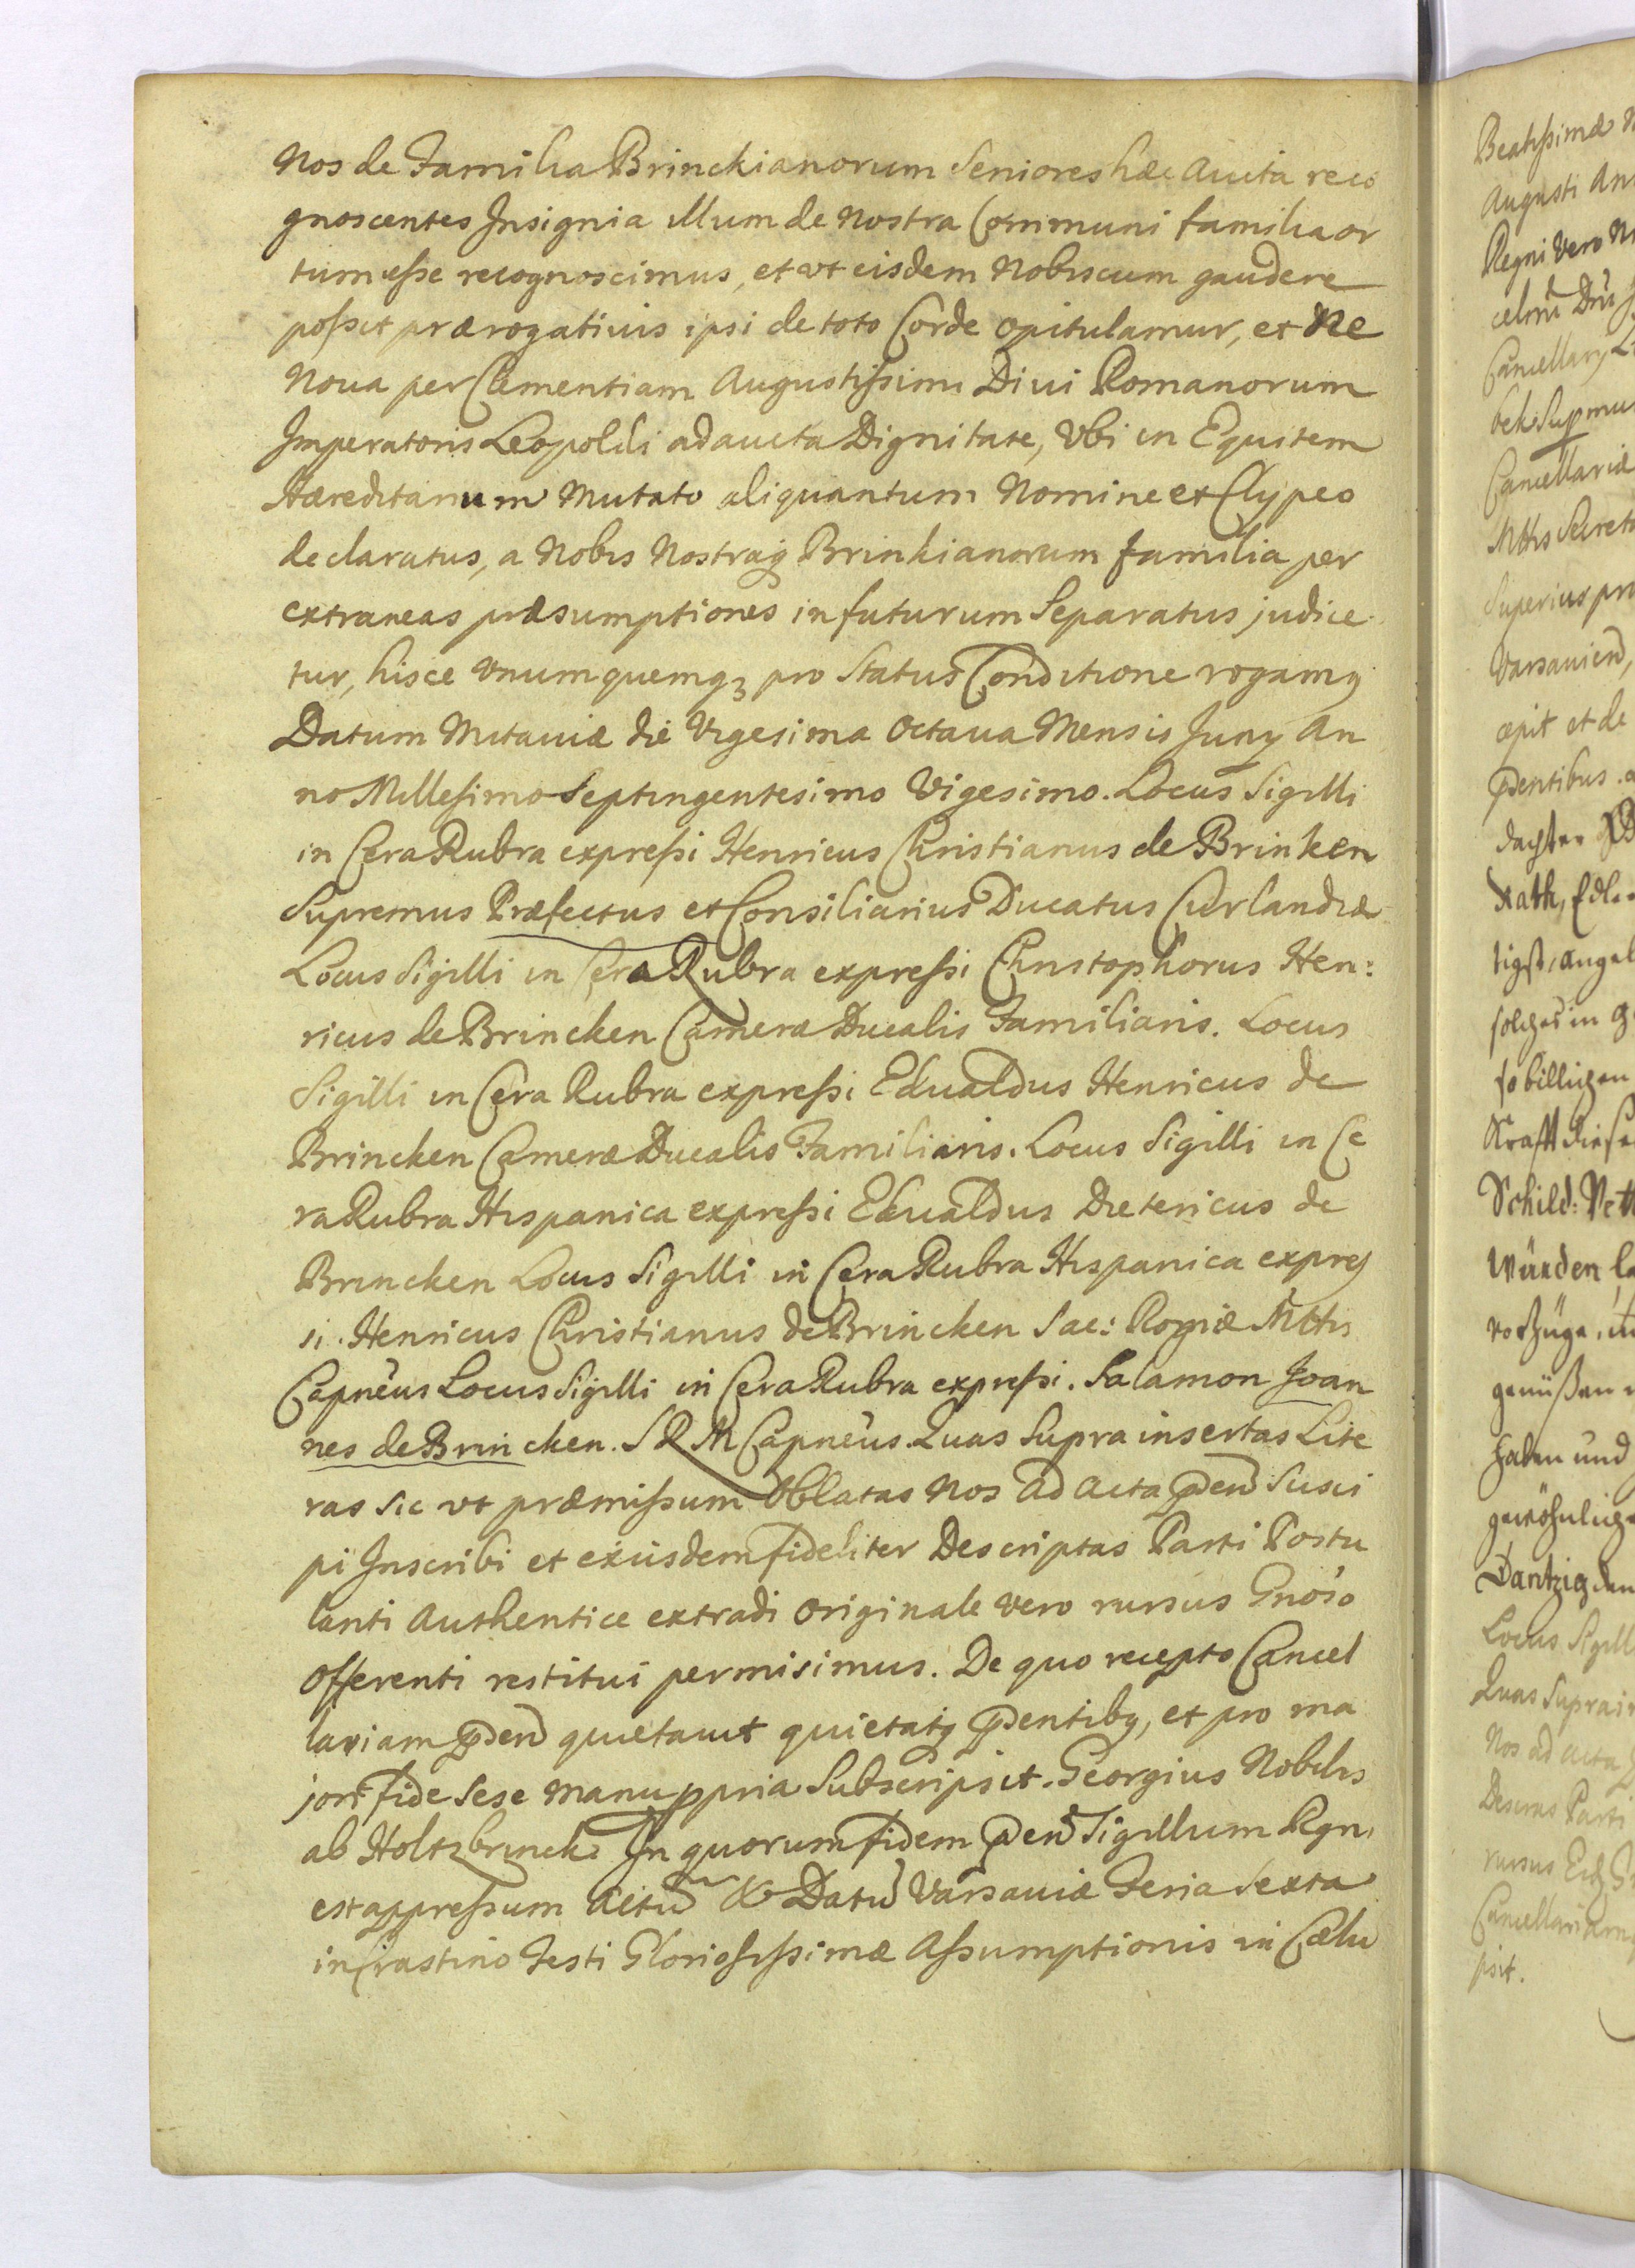 Nos de Familia Brinckianorum Seniores hæc Aucta reco
gnoscentes Insignia illum de Nostra Communi familia or
tum esse recognoscimus, et vt eisdem Nobiscum gaudere
possit prærogativis ipsi de toto Corde opitulamur, et Ne
Noua per Clementiam Augustissimi Diui Romanorum
Imperatoris Leopoldi adaucta Dignitate, Vbi in Equitem
Hæreditarium Mutato aliquantum Nomine et Clypeo
declaratus, a Nobis Nostraq Brinkianorum familia per
extraneas præsumptiones in futurum Separatus judice
tur, hisce Vnumquemq3 pro Status Conditione rogamq
Datum Mitaviæ die Vigesima Octaua Mensis Juny An
no Millesimo Septingentesimo Vigesimo. Locus Sigilli
in Cera Rubra expressi Henricus Christianus de Brinken
Supremus Præfectus et Consiliarius Ducatus Curlandiæ
Locus Sigilli in Cera Rubra expressi Christophorus Hen:
ricus de Brincken Cameræ Ducalis Familiaris. Locus
Sigilli in Cera Rubra expressi Edualdus Henricus de
Brincken Cameræ Ducalis Familiaris. Locus Sigilli in Ce
ra Rubra Hispanica expressi Edualdus Dietericus de
Brincken Locus Sigilli in Cera Rubra Hispanica expres
si. Henricus Christianus de Brincken Sac: Regiæ Mttis
Capnēus Locus Sigilli in Cera Rubra expressi. Salamon Joan
nes de Brincken. S R M Capnēus. Quas Supra insertas Lite
ras Sic vt præmissum Oblatas Nos ad Acta pden Susci
pi Inscribi et exiisdem fideliter Descriptas Parti Postu
lanti Authentice extradi Originale vero rursus Gnoso
Offerenti restitui permisimus. De quo recepto Cancel
lariam pden quietauit quietatq pdentibq, et pro ma
jori fide Sese Manu ppria Subscripsit. Georgius Nobilis
ab Holtzbrinck. In quorum fidem pden Sigillum Regni
est appressum Actū & Datū Varsaviæ Feria Sexta
in Crastino Festi Gloriosissimæ Assumptionis in Cælu
Beatissimæ
Augusti
Regni Vero
Cancellary
Cancellariæ
Mttis Secret
Superius
cepit et de
pdentibus
Rath, Edl
solches in
so billigen
Krafft dieser
Schild:
Würden
haben und
Dantzig den
Locus Sigill
Quas Supra
Nos ad Acta
Parti
rursus
Cancellariam
psit.